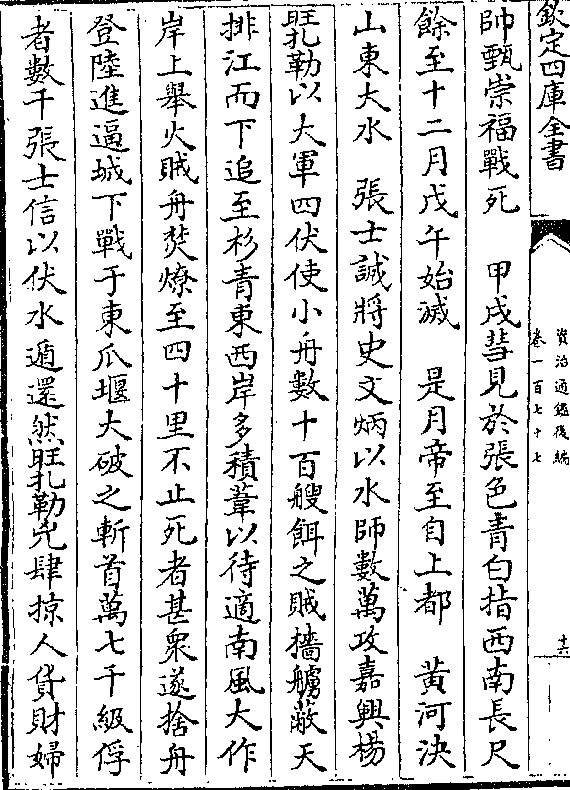 欽定四庫全書
資治通鑑後編
卷一百七十七
十六
帥甄崇福戰死　甲戌彗見於張色青白指西南長尺
餘至十二月戊午始滅　是月帝至自上都　黃河決
山東大水　張士誠將史文炳以水師數萬攻嘉興楊
旺扎勒以大軍四伏使小舟數十百艘餌之賊檣艣蔽天
排江而下追至杉青東西岸多積葦以待適南風大作
岸上舉火賊舟焚燎至四十里不止死者甚衆遂捨舟
登陸進逼城下戰于東瓜堰大破之斬首萬七千級俘
者數千張士信以伏水遁還然旺扎勒兇肆掠人貨財婦